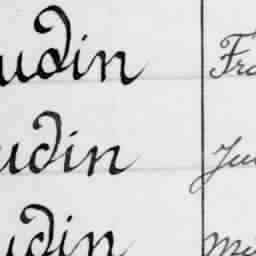 udin Fra
udin Jui
udin Me